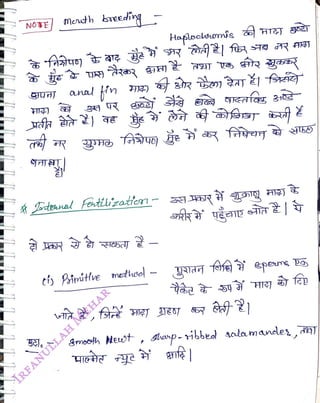 NOTE! Mouth breeding -
Haplochromis की मादा अण्डों
के निषेचन के बाद मुँह में भर लेती है। फिर जब नर मादा
के मुँह के पास तैरकर आता है तथा एक ओर झुककर
अपना anal fin मादा की ओर फैला देता है। जिससे
मादा को उस पर अण्डों जैसे धब्बे वास्तविक अण्डे
प्रतीत होते है। वह मुँह में लेने की कोशिश करती है
तभी नर शुक्राणु निषेचन मुँह में कर निषेचन को सफल
बनाता
है।
* Internal Fertilization :- इस प्रकार में शुक्राणु मादा के
शरीर में पहुँचाए जाते है। ये
दो प्रकार से हो सकता है -
(i) Primitive method - पुरातन विधि में sperms एक
पैकेट के रूप में मादा को दिए
जाते है, जिन्हें मादा ग्रहण कर लेती है।
उदा. - Smooth Newt, sharp-ribbed salamander, तथा
पालमेट न्यूट में आदि।
IRFANULLAH